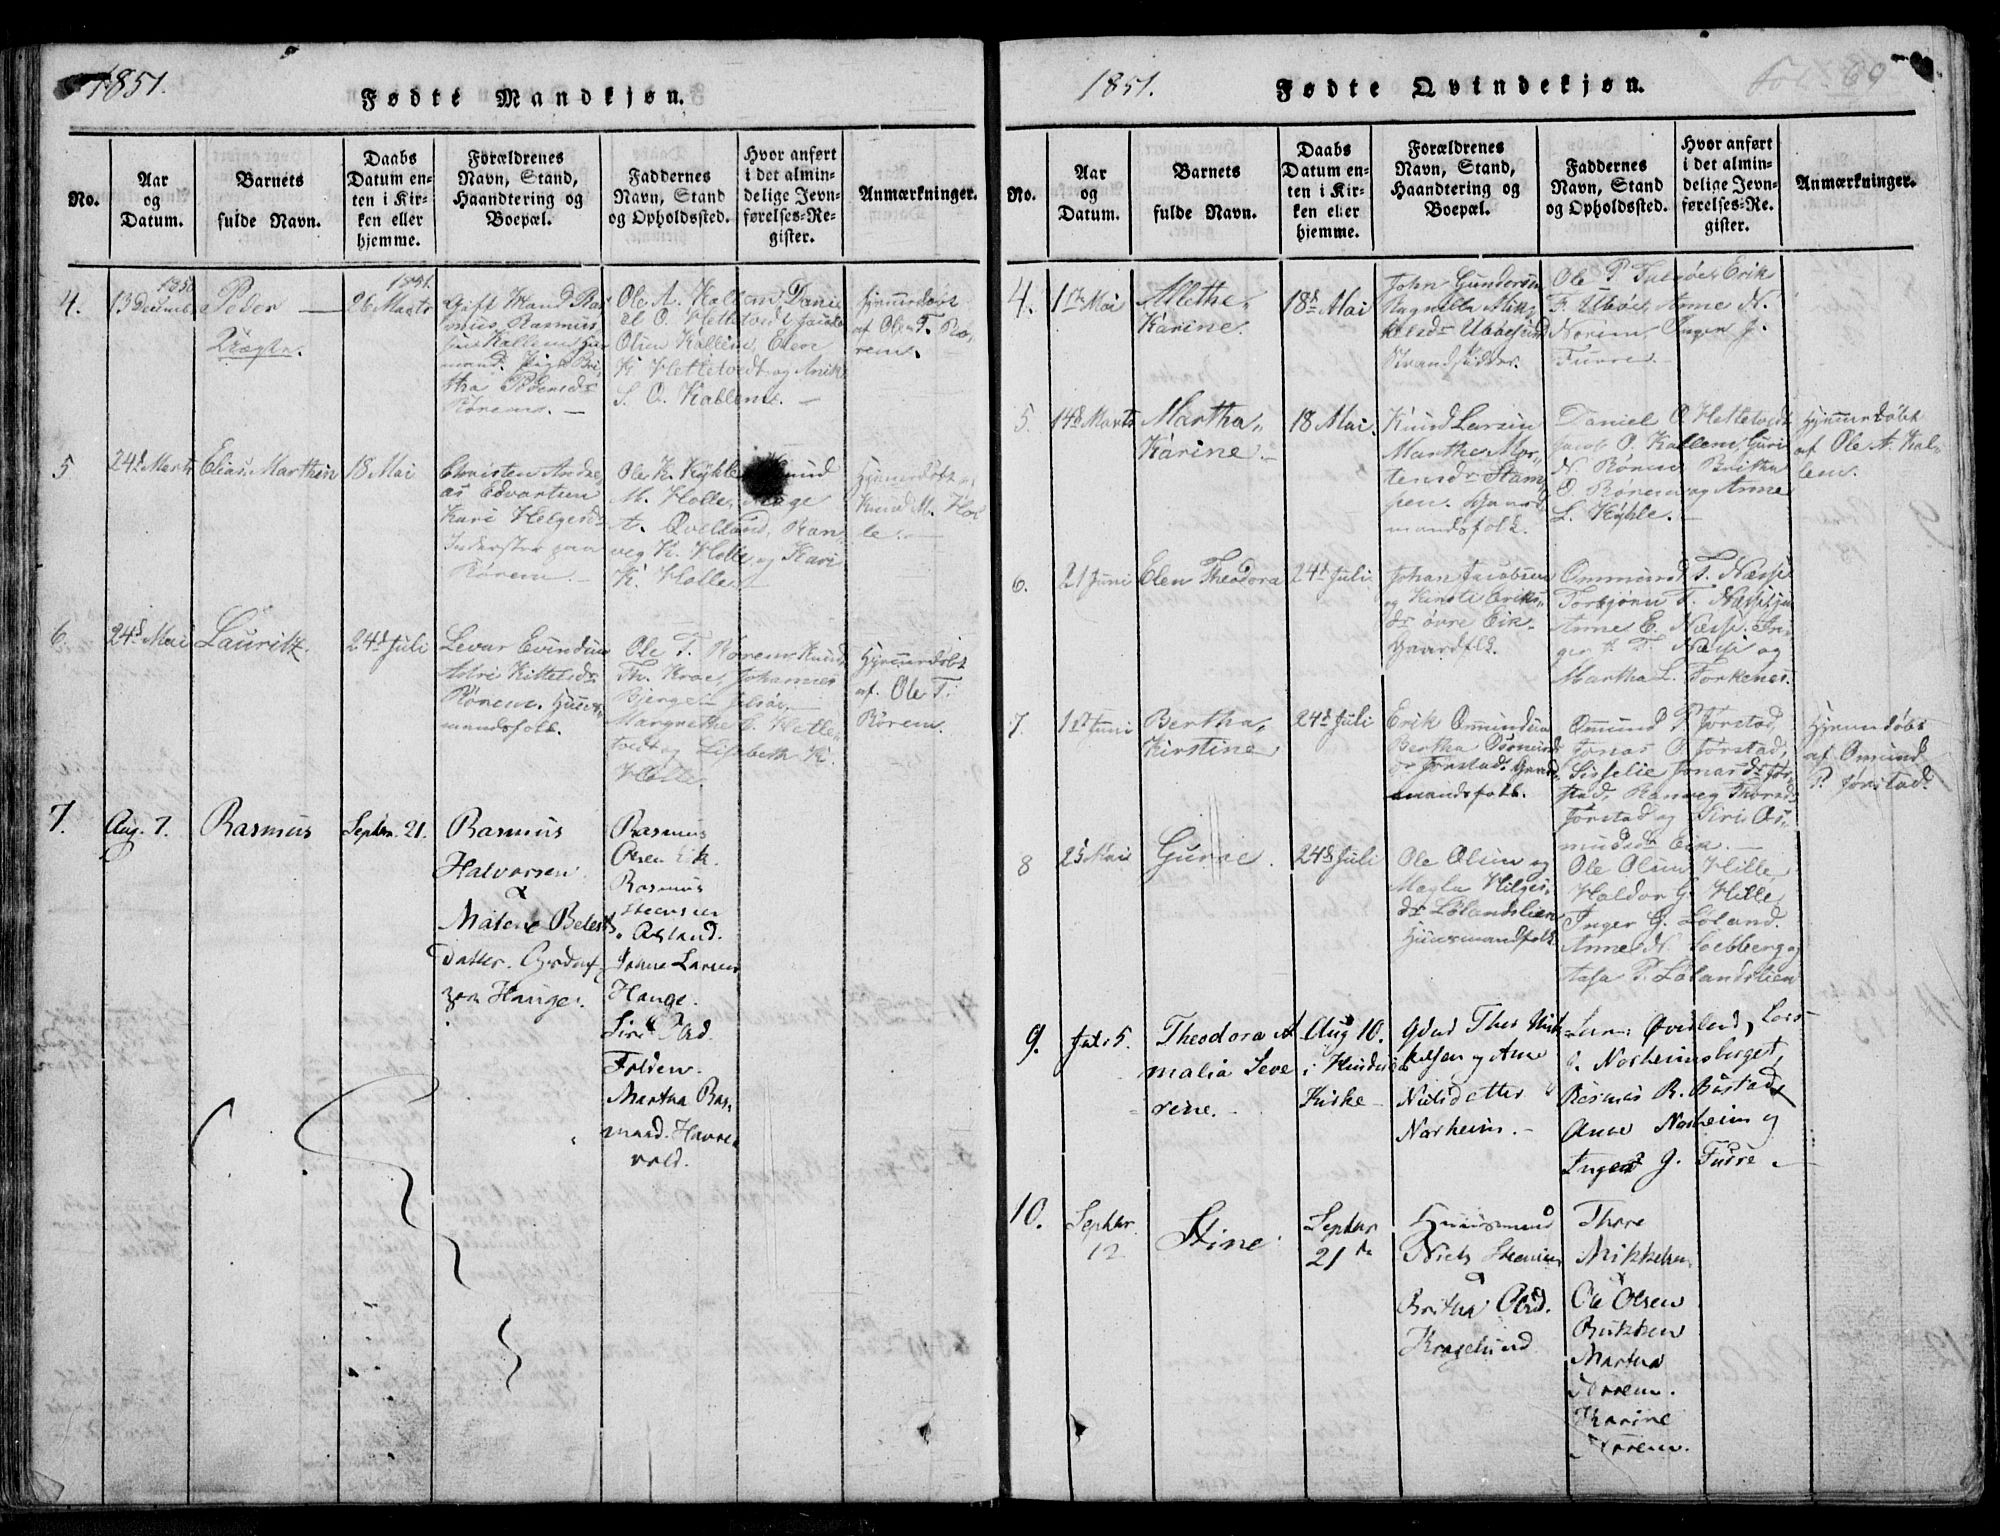 1851.
Fødte Mandkjøn.
No.
Aar
og
Datum.
Barnets
fulde Navn.
Daabs
Datum en-
ten i Kir-
ken eller
hjemme.
Forældrenes
Navn, Stand,
Haandtering og
Boepæl.
Faddernes
Navn, Stand
og Opholdssted.
Hvor anført
i det almin-
delige Jevn-
førelses-Re-
gister.
Anmærkninger.
4.
1850
13 Decembr
Peder
Uægte.
1851.
26 Marts
Gift Mand Ras
mus Rasmus
sen Kallem, Huus
mand. Pige Bri
tha Pedersdr
Rørem. —
Ole A. Kallem, Dani
el O. Hettetvedt, Jacob
Olsen Kallem, Elen
K Hettetvedt og Anike
S. O. Kallem. —
Hjemmedøbt
af Ole T. Rø,
rem.
5
24de Marts
Elias Marthin
18 Mai
Christen Andre
as Edvartsen
Kari Helgesdr
Inderster paa
Rørem. —
Ole K. Kÿhle, Knud
M. Holle, Aage
A. Qvelland, Ran
veg K. Holle og Kari
K. Holle
Hjemmedøbt af
Knud M. Hol
le. —
6.
24de Mai
Lauritz.
24de Juli
Levar Evindsen
Astri Kittelsdr
Rørem. Huus,
mandsfolk.
Ole T. Rørem, Knud
Th. Kroe, Johannes
Bjerge
Margrethe E. Hette
tvedt og Lisebeth K.
Holle.
Hjemmedøbt
af. Ole T.
Rörem.
7.
Aug. 7.
Rasmus
Septbr. 21.
Rasmus
Halvorsen
&
Malene
datter.
Hauge.
Rasmus
Olsen Eik.
Rasmus
Steensen
Larsen
Hauge.
Siri
Folden.
Martha Ras,
musd. Havre
vold.
1851.
Fødte Qvindekjøn.
Fol. 69
No.
Aar
og
Datum.
Barnets
fulde Navn.
Daabs
Datum en-
ten i Kir-
ken eller
hjemme.
Forældrenes
Navn, Stand,
Haandtering og
Boepæl.
Faddernes
Navn, Stand
og Opholdssted.
Hvor anført
i det almin-
delige Jevn-
førelses-Re-
gister.
Anmærkninger.
4.
1ste Mai
Alethe,
Karine.
18de Mai
John Gundersen
Ragnilla Mik,
kelsdr Ubbøsund
Strandsidder.
Ole P Talgøe, Erik
F. Ubøe, Anne N.
Norem, Inger J.
Furre.
5.
14de Marts
Martha,,
Karine. —
18 Mai.
Knud Larsen
Marthe Mor,
tensdr Stam,
pen. Gaard
mandsfolk.
Daniel O Hettetvedt
Jacob O. Kallem, Guri
N. Rörem, Britha
O. Rörem og Anne
L. Kÿhle. —
Hjemmedøbt
af Ole A. Kal-
lem.
6.
21 Juni
Elen Theodora
24de Juli
Johan Jacobsen
og Kirsti Eriks,
dr øvre Eik.
Gaardfolk.
Ommund T. Næsse
Torbjønn T. Næsse
Anne E. Næsse, In
ger K T. Næsse og
Martha L. Torkenes.
7.
1ste Juni
Bertha,
Kirstine
24de Juli
Erik Omundsen
Bertha Osmunds
dr Jørstad. Gaard,
mandsfolk.
Omund P. Jørstad,
Jonas O. Jørstad,
Sisselie Jonasdr Jør-
stad, Ranveg Thorsdr
Jørstad og Siri Os,
mundsdr Eik. —
Hjemmedøbt
af Omund
P. Jørstad.
8
25 Mai
Gurie.
24de Juli
Ole Olsen og
Magla Helges,
dr Lølandslien
Huusmandsfolk.
Ole Olsen Hille,
Haldor G. Hille,
Inger G. Løland.
Anne N. Soebberg og
Aasa P. Lølandslien
9.
Juli 5.
Theodora A
malia Seve
rine. —
Aug 10.
i
Kirke —
Gdmd Thor Mik
kelsen og Ane
Nielsdatter
Norheim. —
Norheimsberget,
Rasmus R. Bustad
Anne Norheim og
Inger G. Furre. —
10.
Septbr.
12
Stine.
Septbr
21de
Huusmand
Niels Steensen
&
Britha Olsd.
Kragelund
Thore
Mikkelsen
Ole Olsen
Bukken
Martha
Norem.
Karine
Norem.